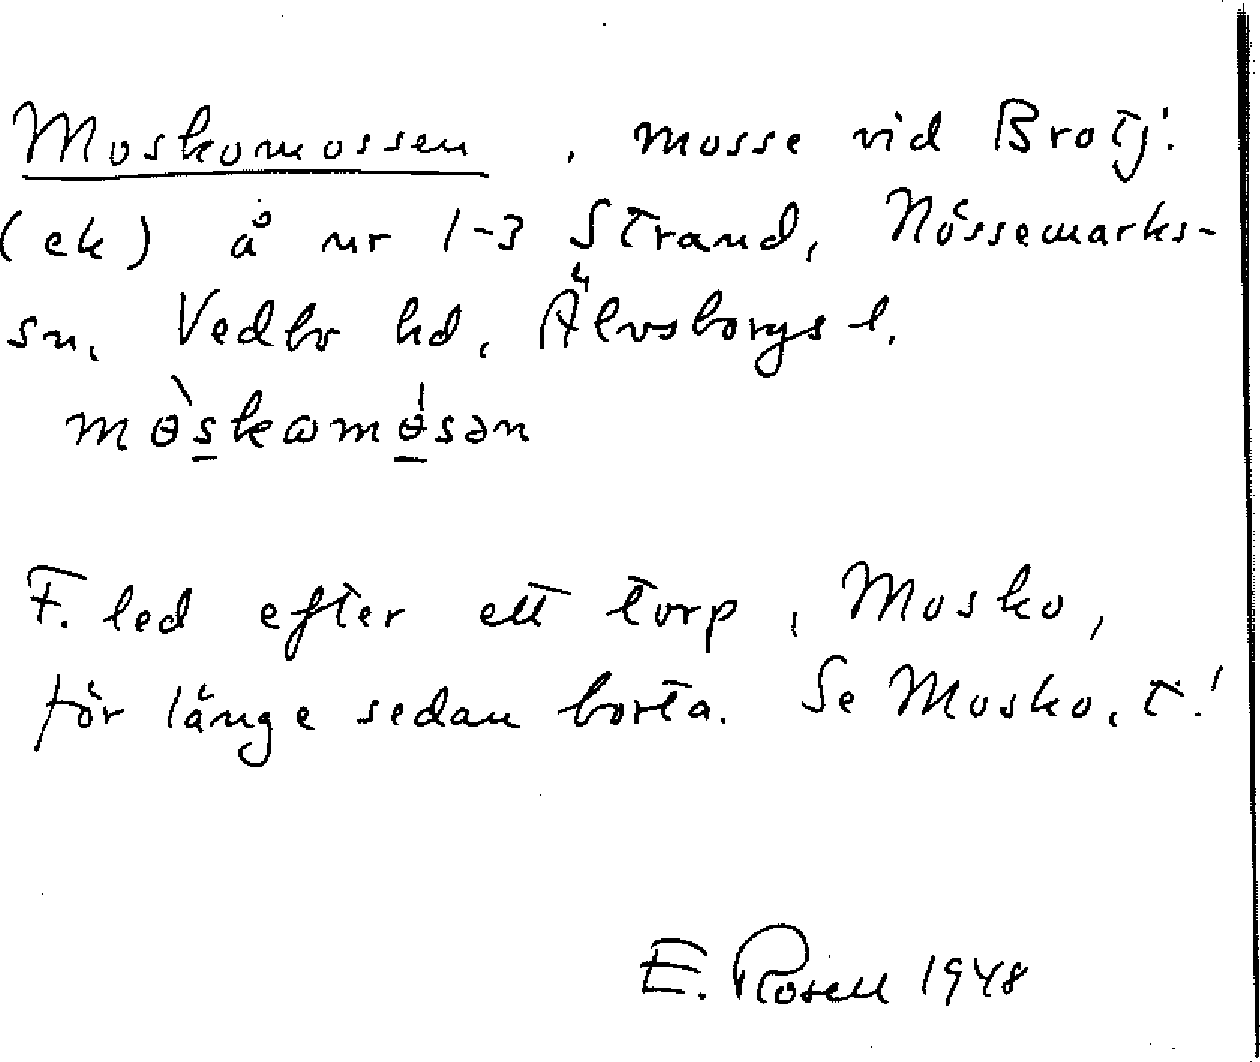 Moskomossen, mosse vid Brotj:
(ek) å nr 1-3 Strand, Nössemarks-
sn, Vedbo hd, Älvsborgs l.
mɵ̀skɷmɵ́sən
F. led efter ett torp, Mosko,
för länge sedan borta. Se Mosko, t.!
E. Rosell 1948